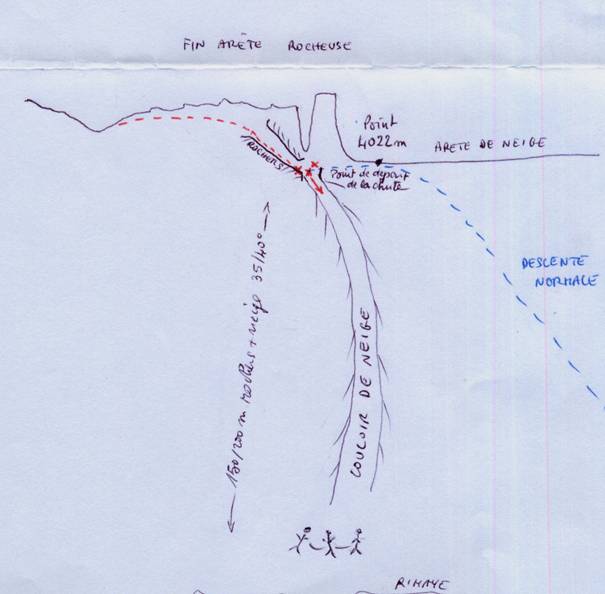 FIN ARÊTE ROCHEUSE
Point
4022m
ARETE DE NEIGE
ROCHERS
Point de départ
de la chute
DESCENTE
NORMALE
150/200 m rochers + neige 35/40°
COULOIR DE NEIGE
RIMAYE